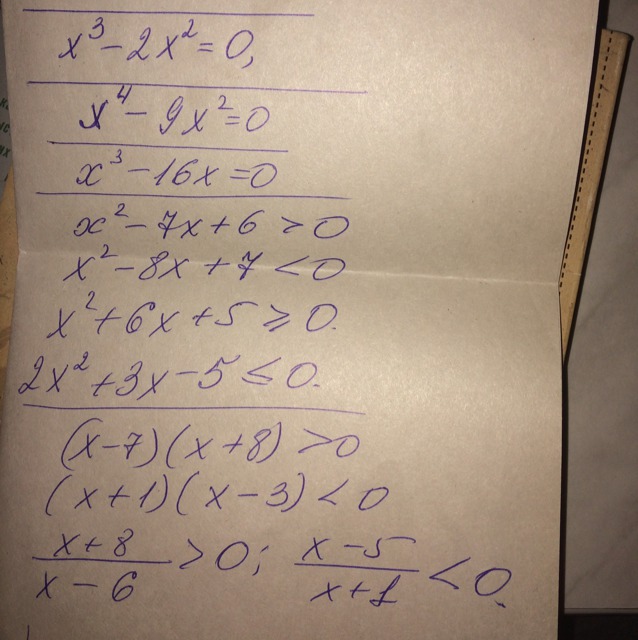 x³ - 2x² = 0,
x⁴ - 9x² = 0
x³ - 16x = 0
x² - 7x + 6 > 0
x² - 8x + 7 < 0
x² + 6x + 5 ⩾ 0.
2x² + 3x - 5 ≤ 0.
(x-7)(x+8) > 0
(x+1)(x-3) < 0
(x+8)/(x-6) > 0; (x-5)/(x+1) < 0.